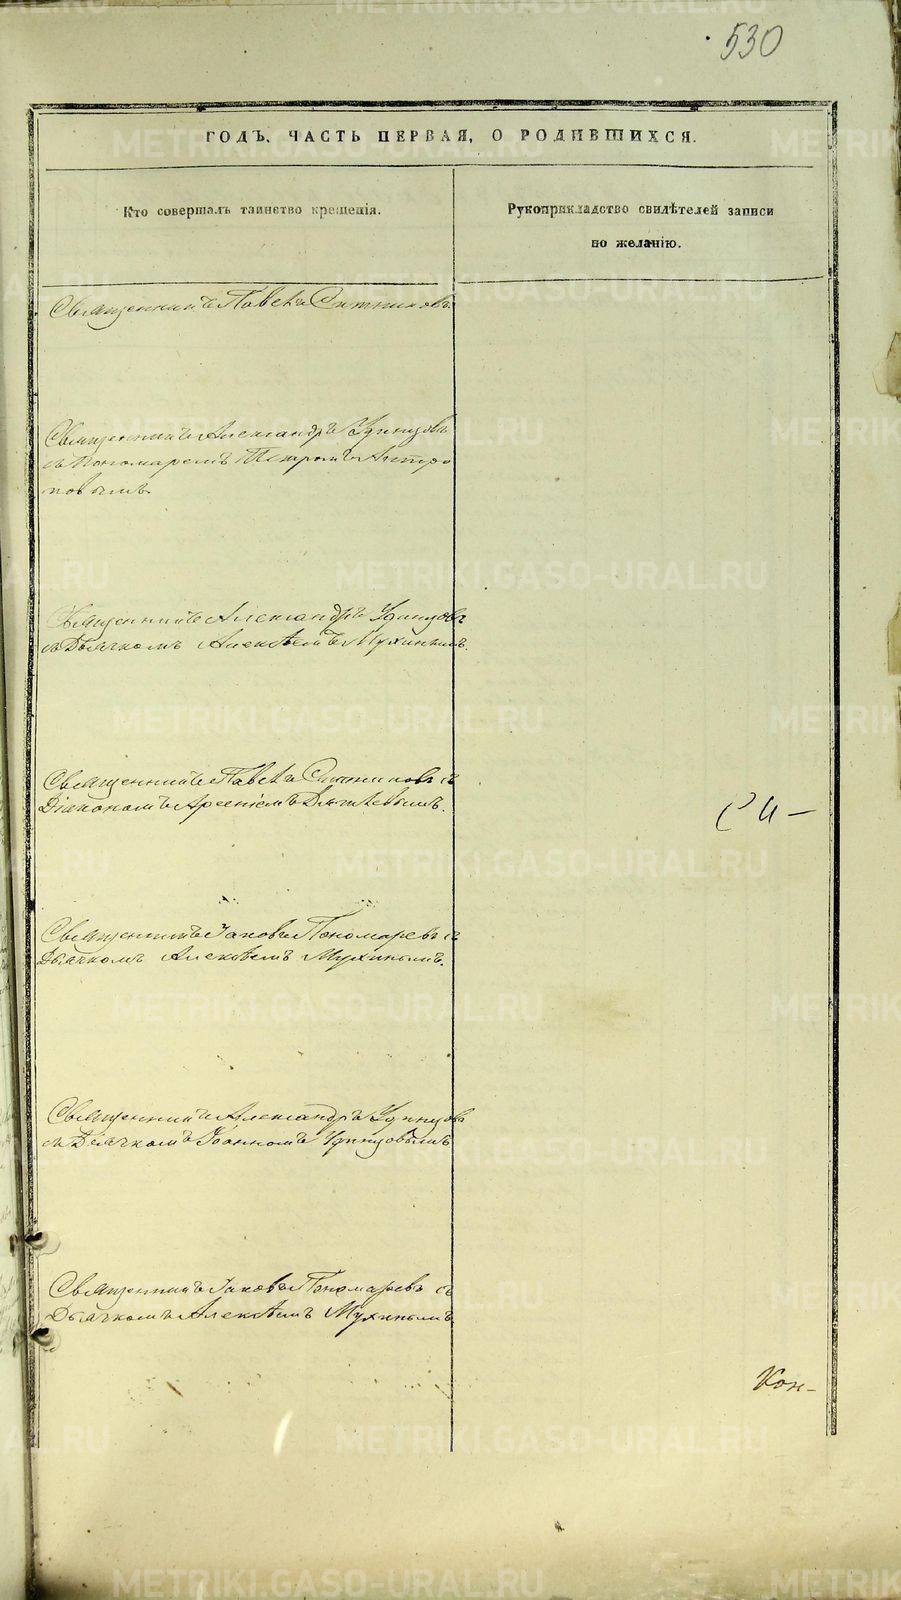 530
ГОДЪ, ЧАСТЬ ПЕРВАЯ, О РОДИВШИХСЯ.
Кто совершалъ таинство крещенія.
Рукоприкладство свидѣтелей записи
по желанію.
Священникъ Павелъ Ситниковъ
Священникъ Александръ Удинцовъ
съ Пономаремъ Петромъ Антро
повымъ.
Священникъ Александръ Удинцовъ
съ Дьячкомъ Алексѣемъ Мухинымъ.
Священникъ Павелъ Ситниковъ съ
Діакономъ Арсеніемъ Дягилевымъ.
Си-
Священникъ Іаковъ Пономаревъ съ
Дьячкомъ Алексѣемъ Мухинымъ.
Священникъ Александръ Удинцовъ
съ Дьячкомъ Іоанномъ Удинцовымъ
Священникъ Іаковъ Пономаревъ съ
Дьячкомъ Алексѣемъ Мухинымъ
Кон-
METRIKI.GASO-URAL.RU